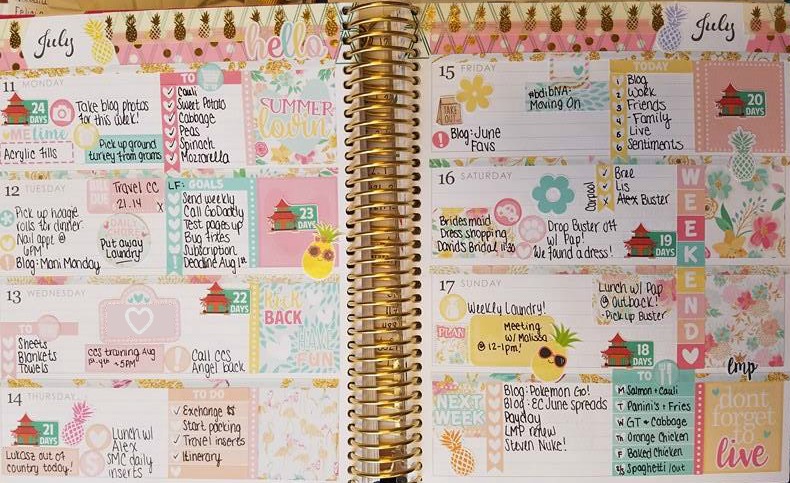 July
hello
11 MONDAY
24
DAYS
Take blog photos
for this week!
ME time
Acrylic Fills
Pick up ground
turkey from grams
TO
Cauli
Sweet Potato
Cabbage
Peas
Spinach
Mozzarella
SUMMER
lovin'
12 TUESDAY
Pick up hoagie
rolls for dinner
Nail appt @
6PM
Blog: Mani Monday
BILL
DUE
Travel CC
21.14
x
Put away
Laundry
LF: GOALS
Send weekly
Call GoDaddy
Test pages up
Bug fixes
Subscription
Deadline Aug 1st
23
DAYS
13 WEDNESDAY
TO
Sheets
Blankets
Towels
CCS training Aug
1st, 4th + 5PM
22
DAYS
Call CCS
Angel back
KICK
BACK
HAVE
FUN
14 THURSDAY
21
DAYS
Lukasz out of
country today!
Lunch w/
Alex
SMC daily
inserts
Exchange $$
Start packing
Travel inserts
Itinerary
July
15 FRIDAY
TAKE
OUT
Blog: June
Favs
#bdibNA:
Moving On
TODAY
1 Blog
2 Work
3 Friends
4 -Family
5 Live
6 Sentiments
20
DAYS
16 SATURDAY
Bridesmaid
Dress shopping
Davids Bridal 11:30
Carpool
Bree
Lis
Alex Buster
Drop Buster off
w/ Pap!
We found a dress!
19
DAYS
WEEKEND
17 SUNDAY
Weekly Laundry!
PLAN
Meeting
w/ Malissa
@ 12-1pm!
Lunch w/ Pap
@ Outback!
- Pick up Buster
18
DAYS
lmp
NEXT
WEEK
Blog: Pokemon Go!
Blog: EC June spreads
Payday
LMP renew
Steven Nuke!
TO
M Salmon + Cauli
T Panini's + Fries
W GT + Cabbage
Th Orange Chicken
F Baked Chicken
S/S Spaghetti / out
dont
forget
to
live